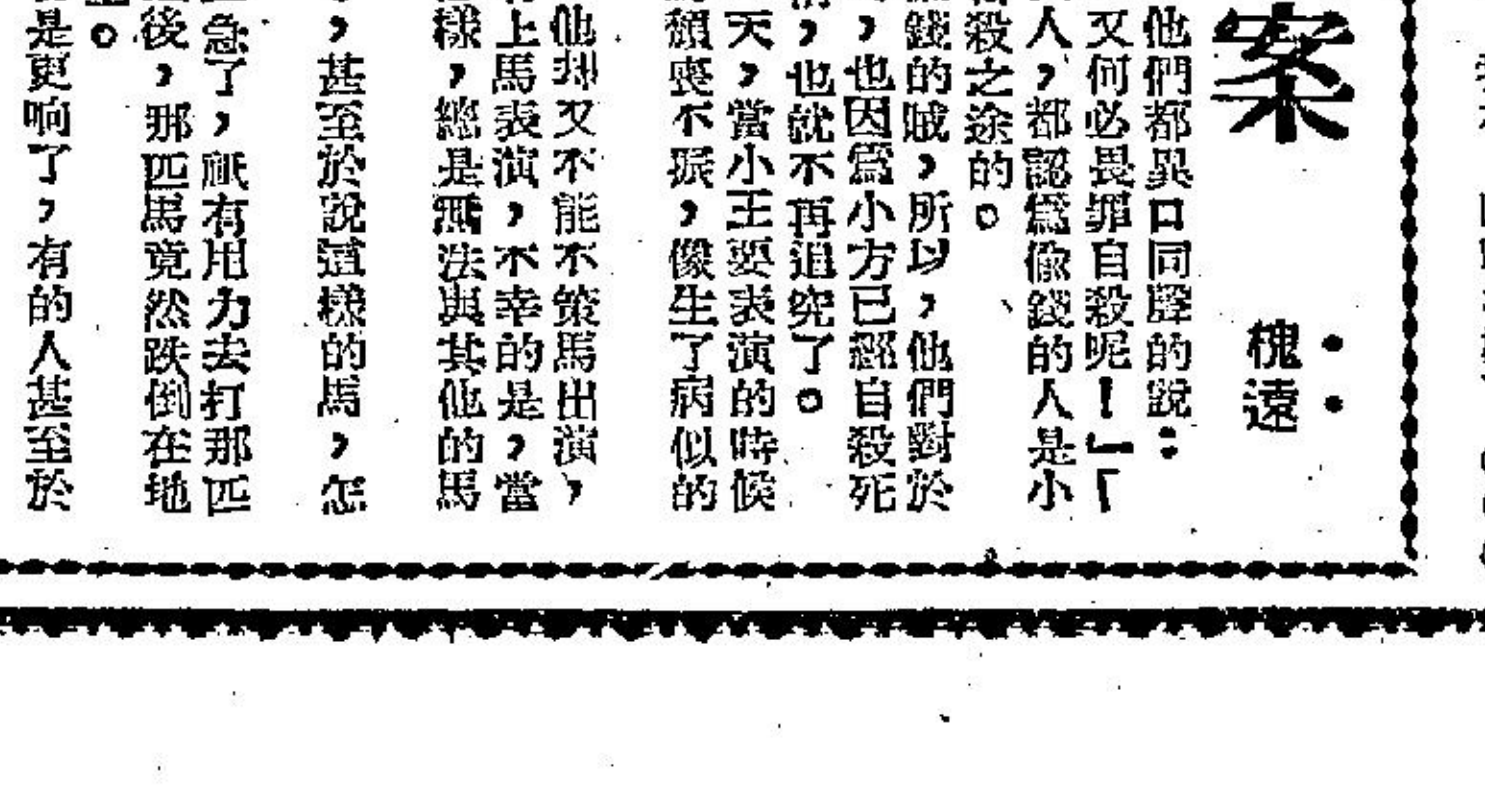 案
槐遠
他們都異口同聲的說：
又何必畏罪自殺呢！」「
人，都認爲偷錢的人是小
殺之途的。
錢的賊，所以，他們對於
，也因爲小方已經自殺死
，也就不再追究了。
天，當小王要表演的時候
頹喪不振，像生了病似的
他却又不能不策馬出演，
上馬表演，不幸的是，當
樣，總是無法與其他的馬
，甚至於說這樣的馬，怎
急了，祇有用力去打那匹
後，那匹馬竟然跌倒在地
。
是更响了，有的人甚至於